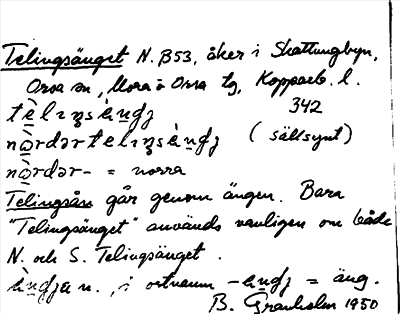 Telingsänget N. B53, åker i Skattungbyn,
Orsa sn, Mora o Orsa tg, Kopparb. l.
342
(sällsynt)
= norra
Telingsån går genom ängen. Bara
"Telingsänget" används vanligen om både
N. och S. Telingsänget.
n., i ortnamn = äng.
B. Granholm 1950